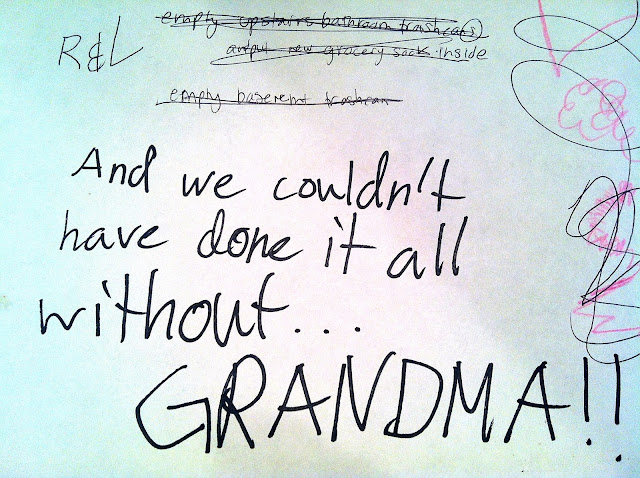 empty upstairs bathroom trashcan(s)
R&L
and put new grocery sack inside
empty basement trashcan
And we couldn't
have done it all
without...
GRANDMA!!